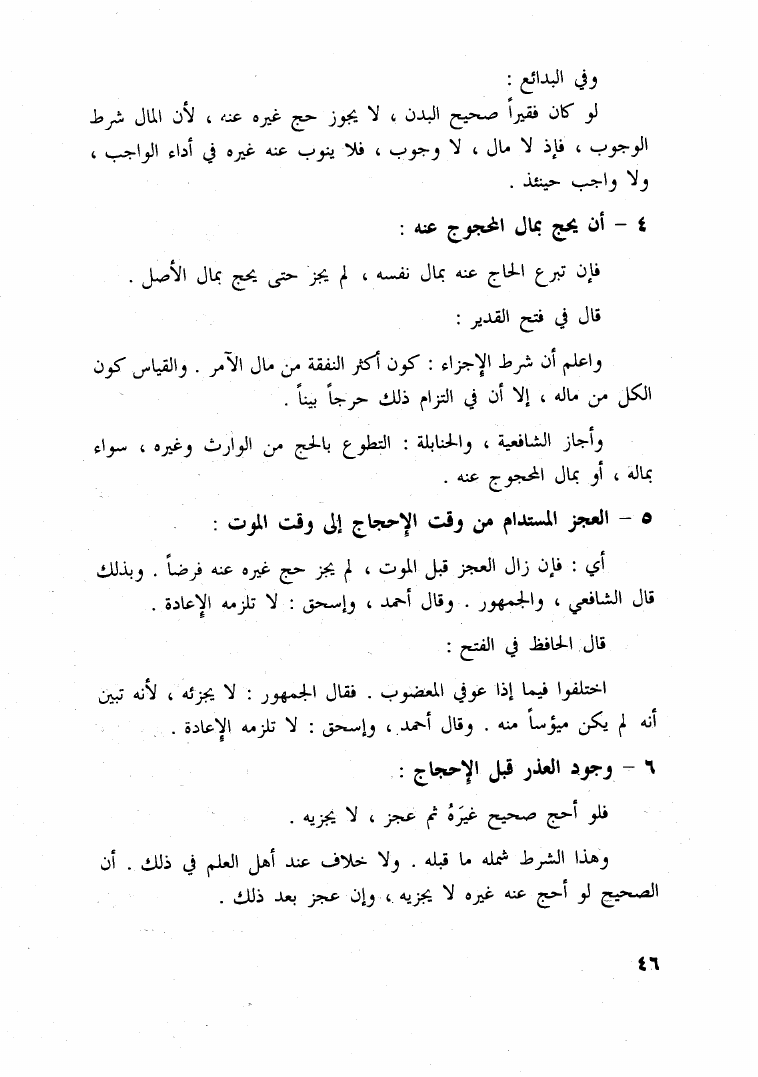 وفي البدائع :
لو كان فقيراً صحيح البدن ، لا يجوز حج غيره عنه ، لأن المال شرط
الوجوب ، فإذ لا مال ، لا وجوب ، فلا ينوب عنه غيره في أداء الواجب ،
ولا واجب حينئذ .
٤ – أن يحج بمال المحجوج عنه :
فإن تبرع الحاج عنه بمال نفسه ، لم يجز حتى يحج بمال الأصل .
قال في فتح القدير :
واعلم أن شرط الإجزاء : كون أكثر النفقة من مال الآمر . والقياس كون
الكل من ماله ، إلا أن في التزام ذلك حرجاً بيناً .
وأجاز الشافعية ، والحنابلة : التطوع بالحج من الوارث وغيره ، سواء
بماله ، أو بمال المحجوج عنه .
٥ – العجز المستدام من وقت الإحجاج إلى وقت الموت :
أي : فإن زال العجز قبل الموت ، لم يجز حج غيره عنه فرضاً . وبذلك
قال الشافعي ، والجمهور . وقال أحمد ، وإسحق : لا تلزمه الإعادة .
قال الحافظ في الفتح :
اختلفوا فيما إذا عوفي المعضوب . فقال الجمهور : لا يجزئه ، لأنه تبين
أنه لم يكن ميؤساً منه . وقال أحمد ، وإسحق : لا تلزمه الإعادة .
٦ – وجود العذر قبل الإحجاج :
فلو أحج صحيح غيَرَهُ ثم عجز ، لا يجزيه .
وهذا الشرط شمله ما قبله . ولا خلاف عند أهل العلم في ذلك . أن
الصحيح لو أحج عنه غيره لا يجزيه ، وإن عجز بعد ذلك .
٤٦